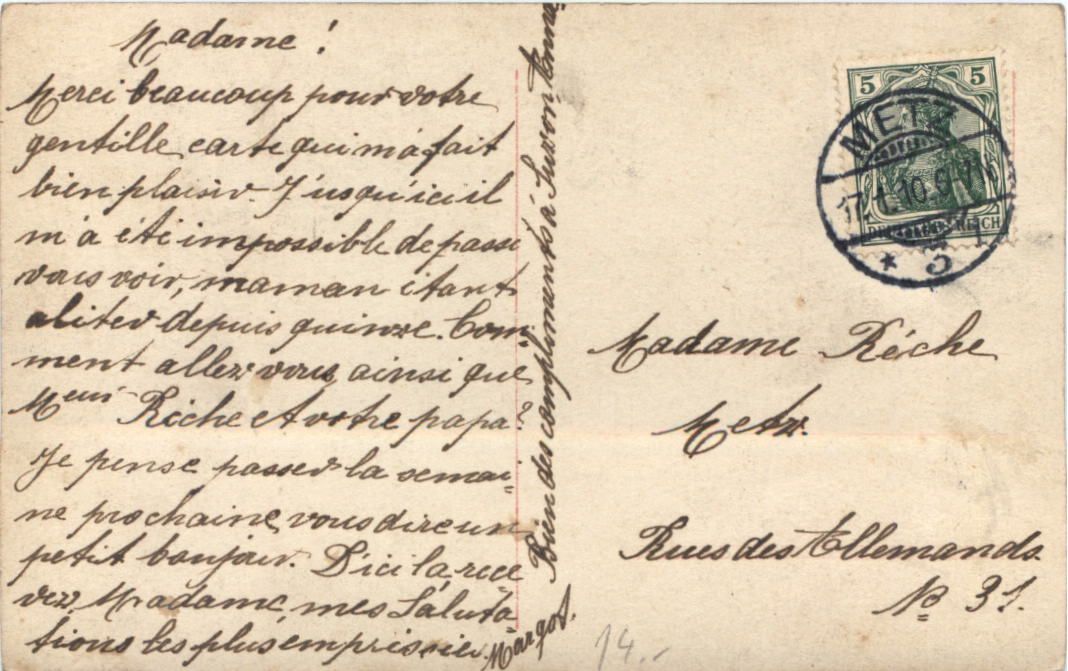 Madame !
Merci beaucoup pour votre
gentille carte qui m'a fait
bien plaisir. J'usqu'ici il
m'a été impossible de passe
vous voir, maman étant
aliter depuis quinze. Com-
ment allez vous, ainsi que
Meur Réche et votre papa?
Je pense passer la semai-
ne prochaine, vous dire un
petit bonjour. D'ici la, rece
vez, Madame, mes Saluta
tions les plus empressées.
Margot.
Bien des compliments à Suzon
5 5
METZ
17.1.10.
* 3
DEUTSCHES REICH
Madame Réche
Metz.
Rues des Allemands.
No 31.
14.-